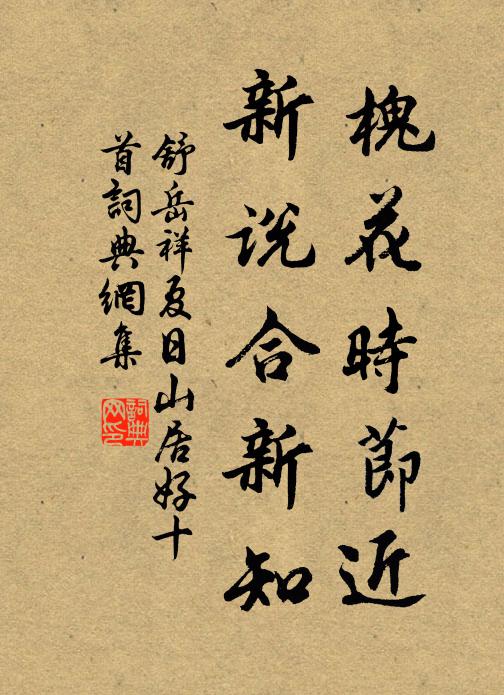 槐花時節近
新說合新知
舒岳祥夏日山居好十
首詞典網集
詞典
网印